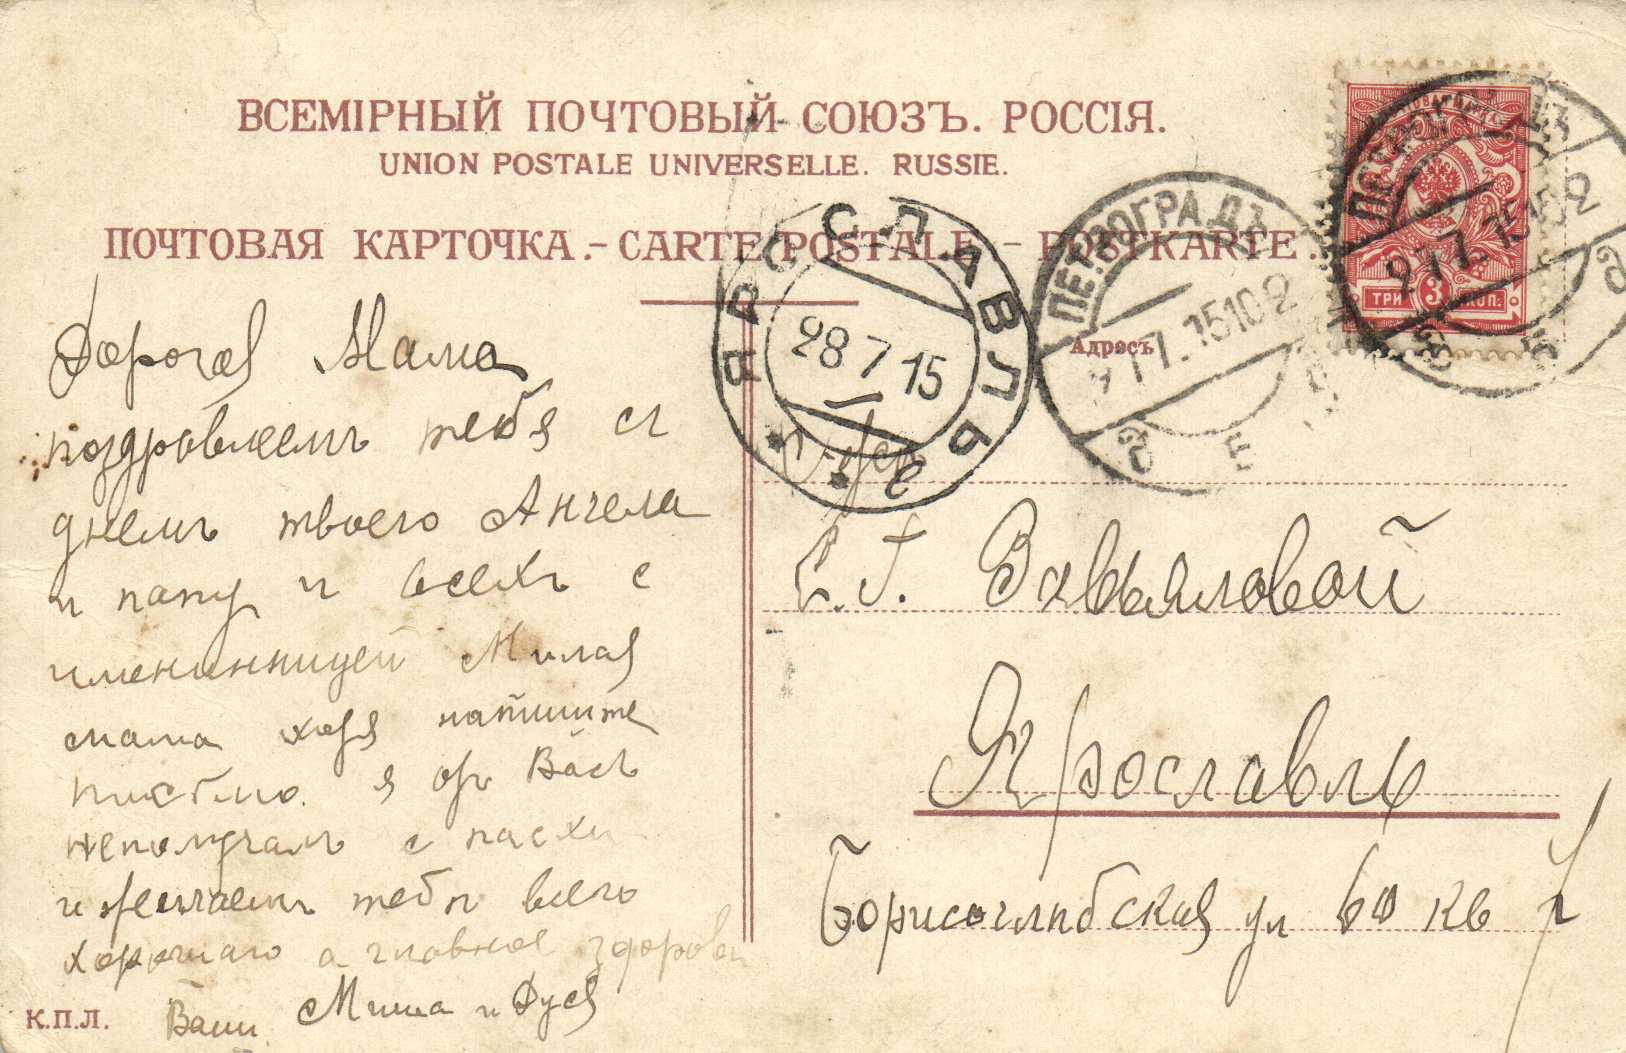 ВСЕМІРНЫЙ ПОЧТОВЫЙ СОЮЗЪ. РОССІЯ.
UNION POSTALE UNIVERSELLE. RUSSIE.
ПОЧТОВАЯ КАРТОЧКА.-CARTE POSTALE - POSTKARTE.
ПЕТРОГРАДЪ
27.7.15 10-2
ТРИ 3 КОП.
ПЕТРОГРАДЪ
27.7.15 10-2
ЯРОСЛАВЛЬ
28 7 15
2
Адресъ
Дорогая Мама
поздровляемъ тебя съ
днемъ твоего Ангела
и папу и всехъ с
именинницей Милая
мама хотя напишите
письмо. я отъ Васъ
неполучалъ с пасхи
и желаемъ тебы всего
хорошаго а главное здоровы
Ваши Миша и Дуся
Е. Г. Завьяловой
Ярославль
Борисоглибская ул 60 кв 1
К.П.Л.